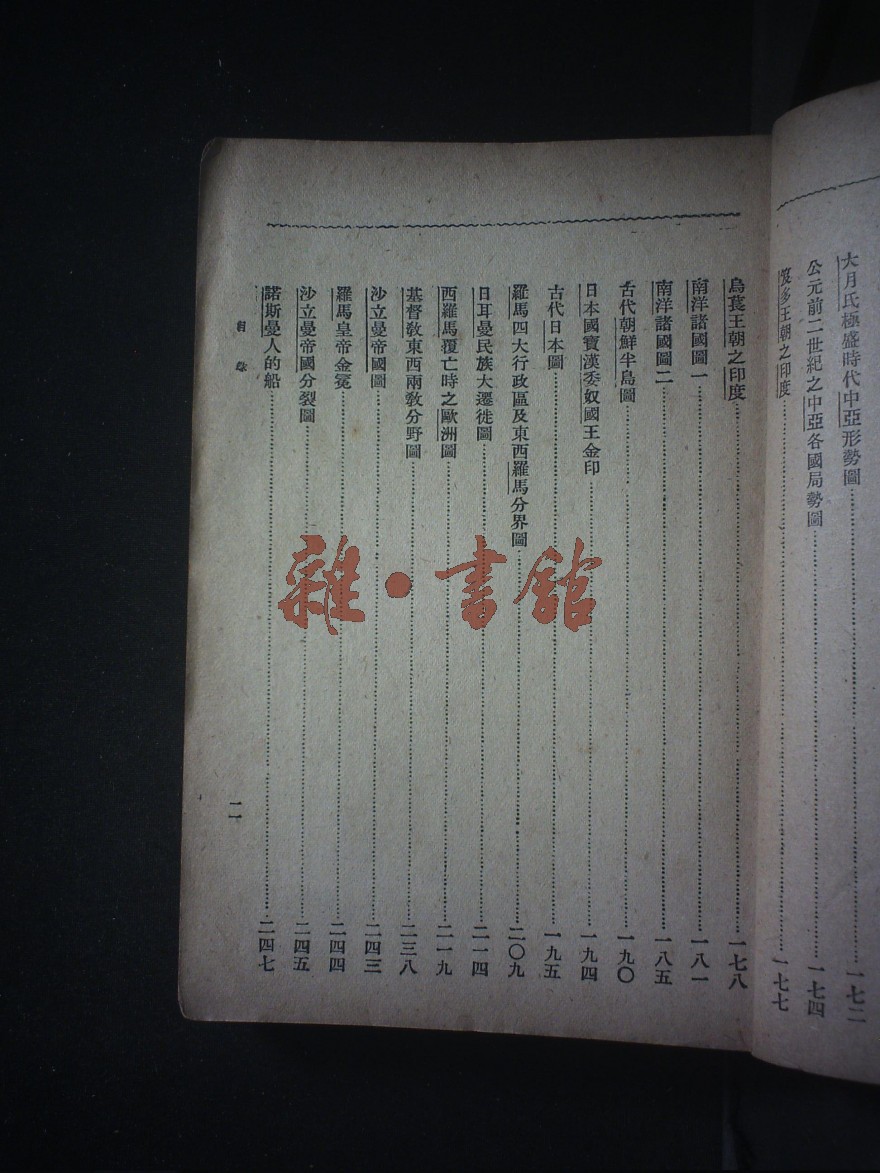 大月氏極盛時代中亞形勢圖……一七二
公元前二世紀之中亞各國局勢圖……一七四
笈多王朝之印度……一七七
烏萇王朝之印度……一七八
南洋諸國圖一……一八一
南洋諸國圖二……一八五
古代朝鮮半島圖……一九〇
日本國寶漢委奴國王金印……一九四
古代日本圖……一九五
羅馬四大行政區及東西羅馬分界圖……二〇九
日耳曼民族大遷徙圖……二一四
西羅馬覆亡時之歐洲圖……二一九
基督敎東西兩敎分野圖……二三八
沙立曼帝國圖……二四三
羅馬皇帝金冕……二四四
沙立曼帝國分裂圖……二四五
諾斯曼人的船……二四七
目錄
一一
雜·書館